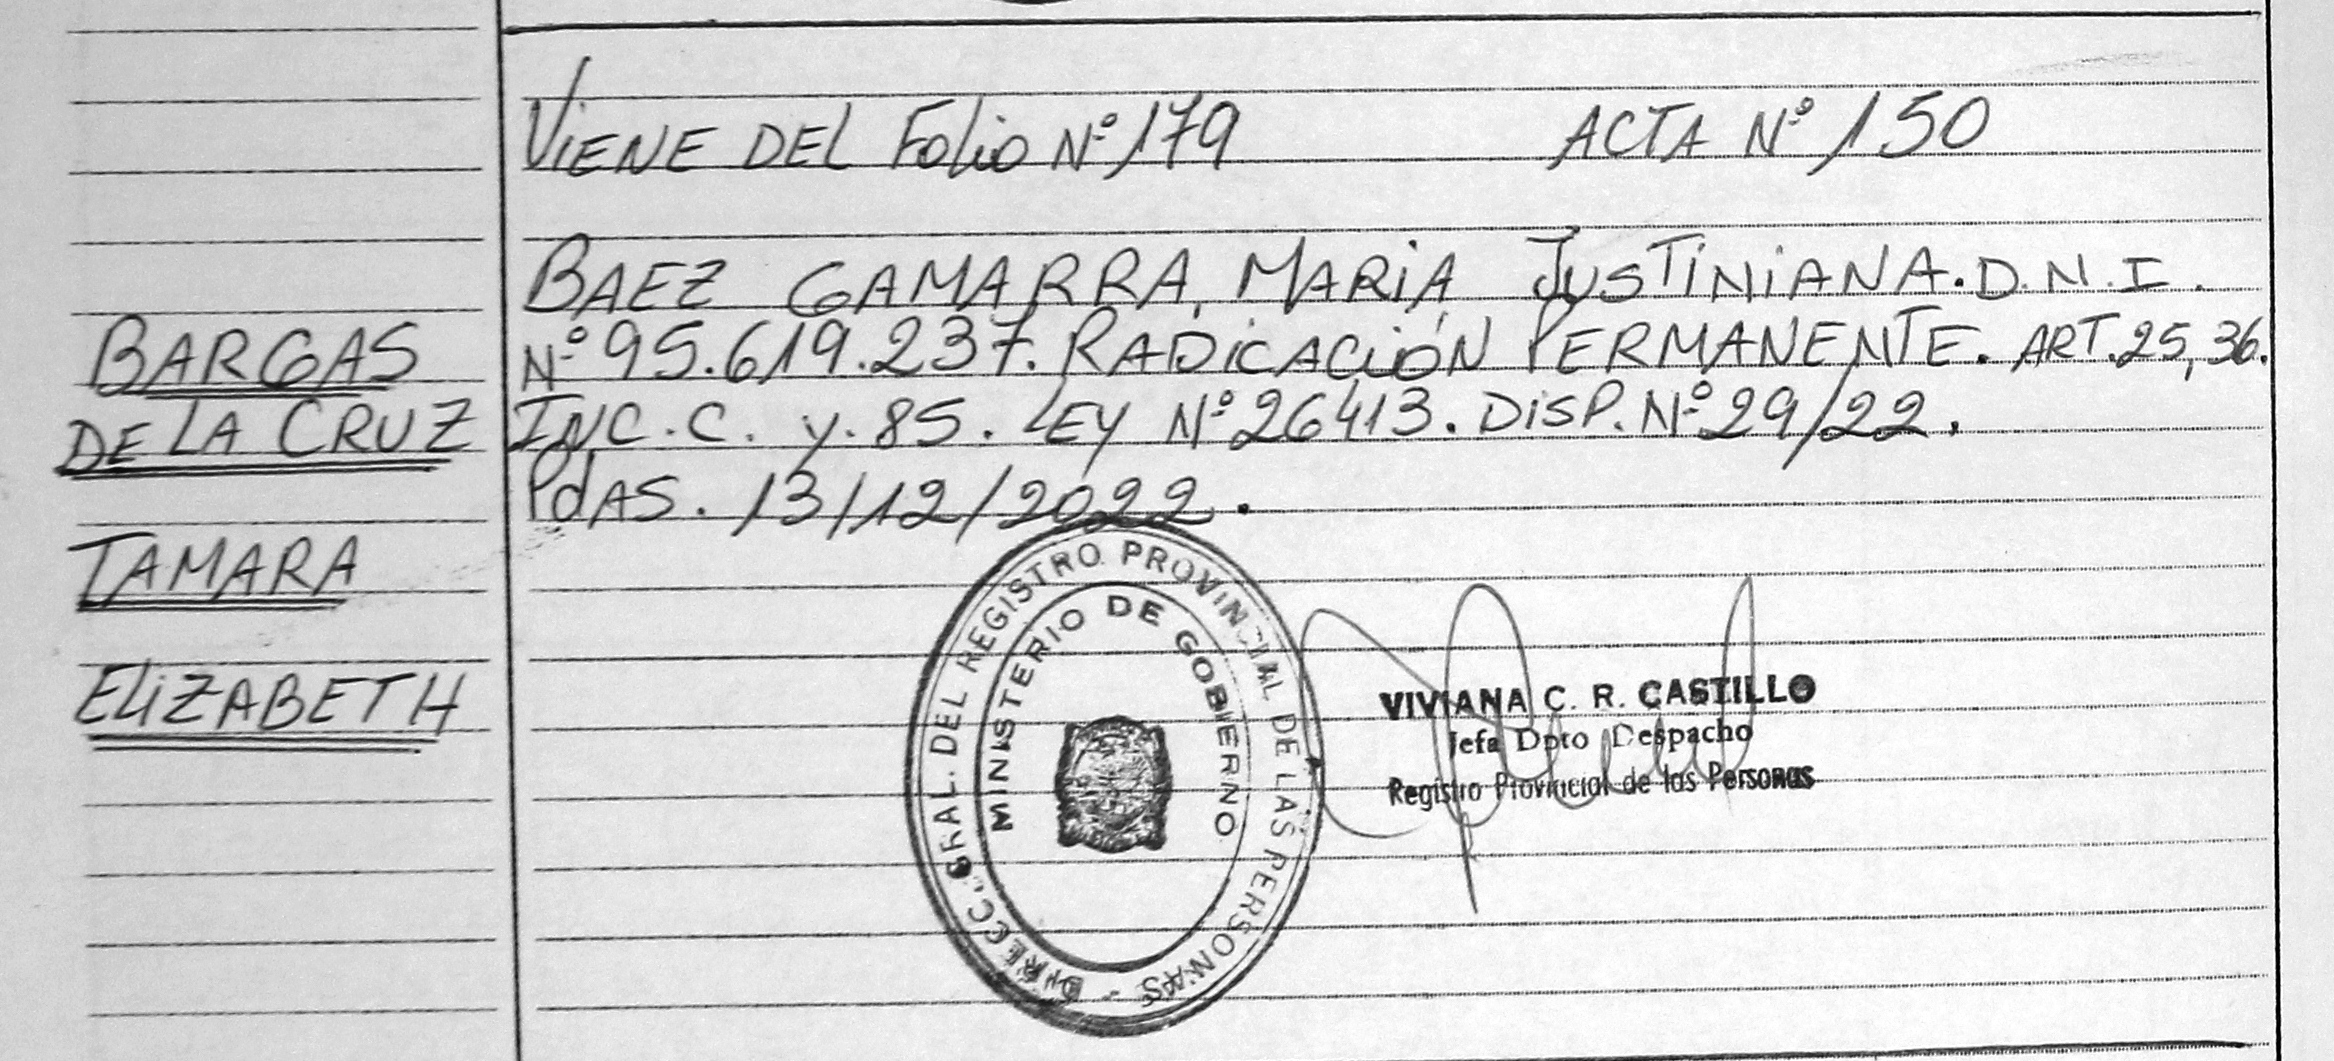 VIENE DEL Folio Nº 179
ACTA Nº 150
BARGAS
DE LA CRUZ
TAMARA
ELIZABETH
BAEZ GAMARRA, MARIA JUSTINIANA. D.N.I.
Nº 95.619.237. RADICACIÓN PERMANENTE. ART. 25, 36.
INC. C. y. 85. LEY Nº 26413. DISP. Nº 29/22.
PdAS. 13/12/2022.
DIRECC. GRAL. DEL REGISTRO PROVINCIAL DE LAS PERSONAS -
MINISTERIO DE GOBIERNO
VIVIANA C. R. CASTILLO
Jefa Dpto Despacho
Registro Provincial de las Personas